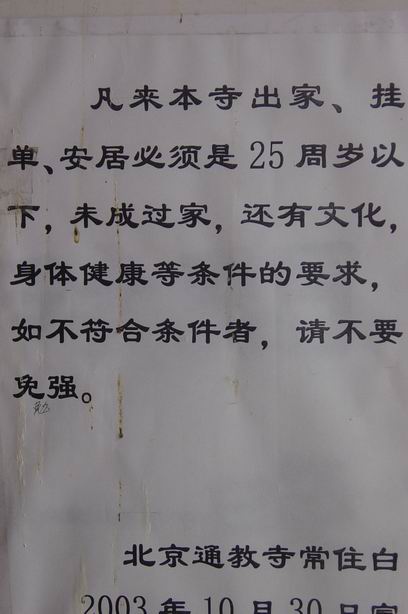 凡来本寺出家、挂
单、安居必须是25周岁以
下，未成过家，还有文化，
身体健康等条件的要求，
如不符合条件者，请不要
免强。
勉
北京通教寺常住白
2003年10月30日